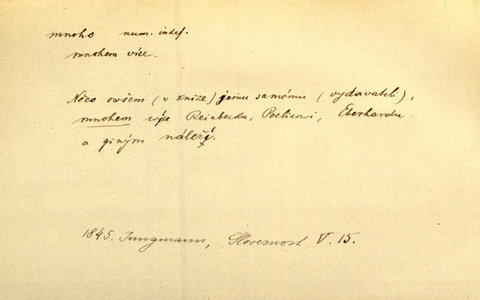 mnoho num. indef.
mnohem více.
Něco owšem (v knize) jemu samému (vydavateli),
mnohem wjce Reinbecku, Poelicowi, Eberhardu
a giným náležj.
1845. Jungmann, Slovesnost V. 15.